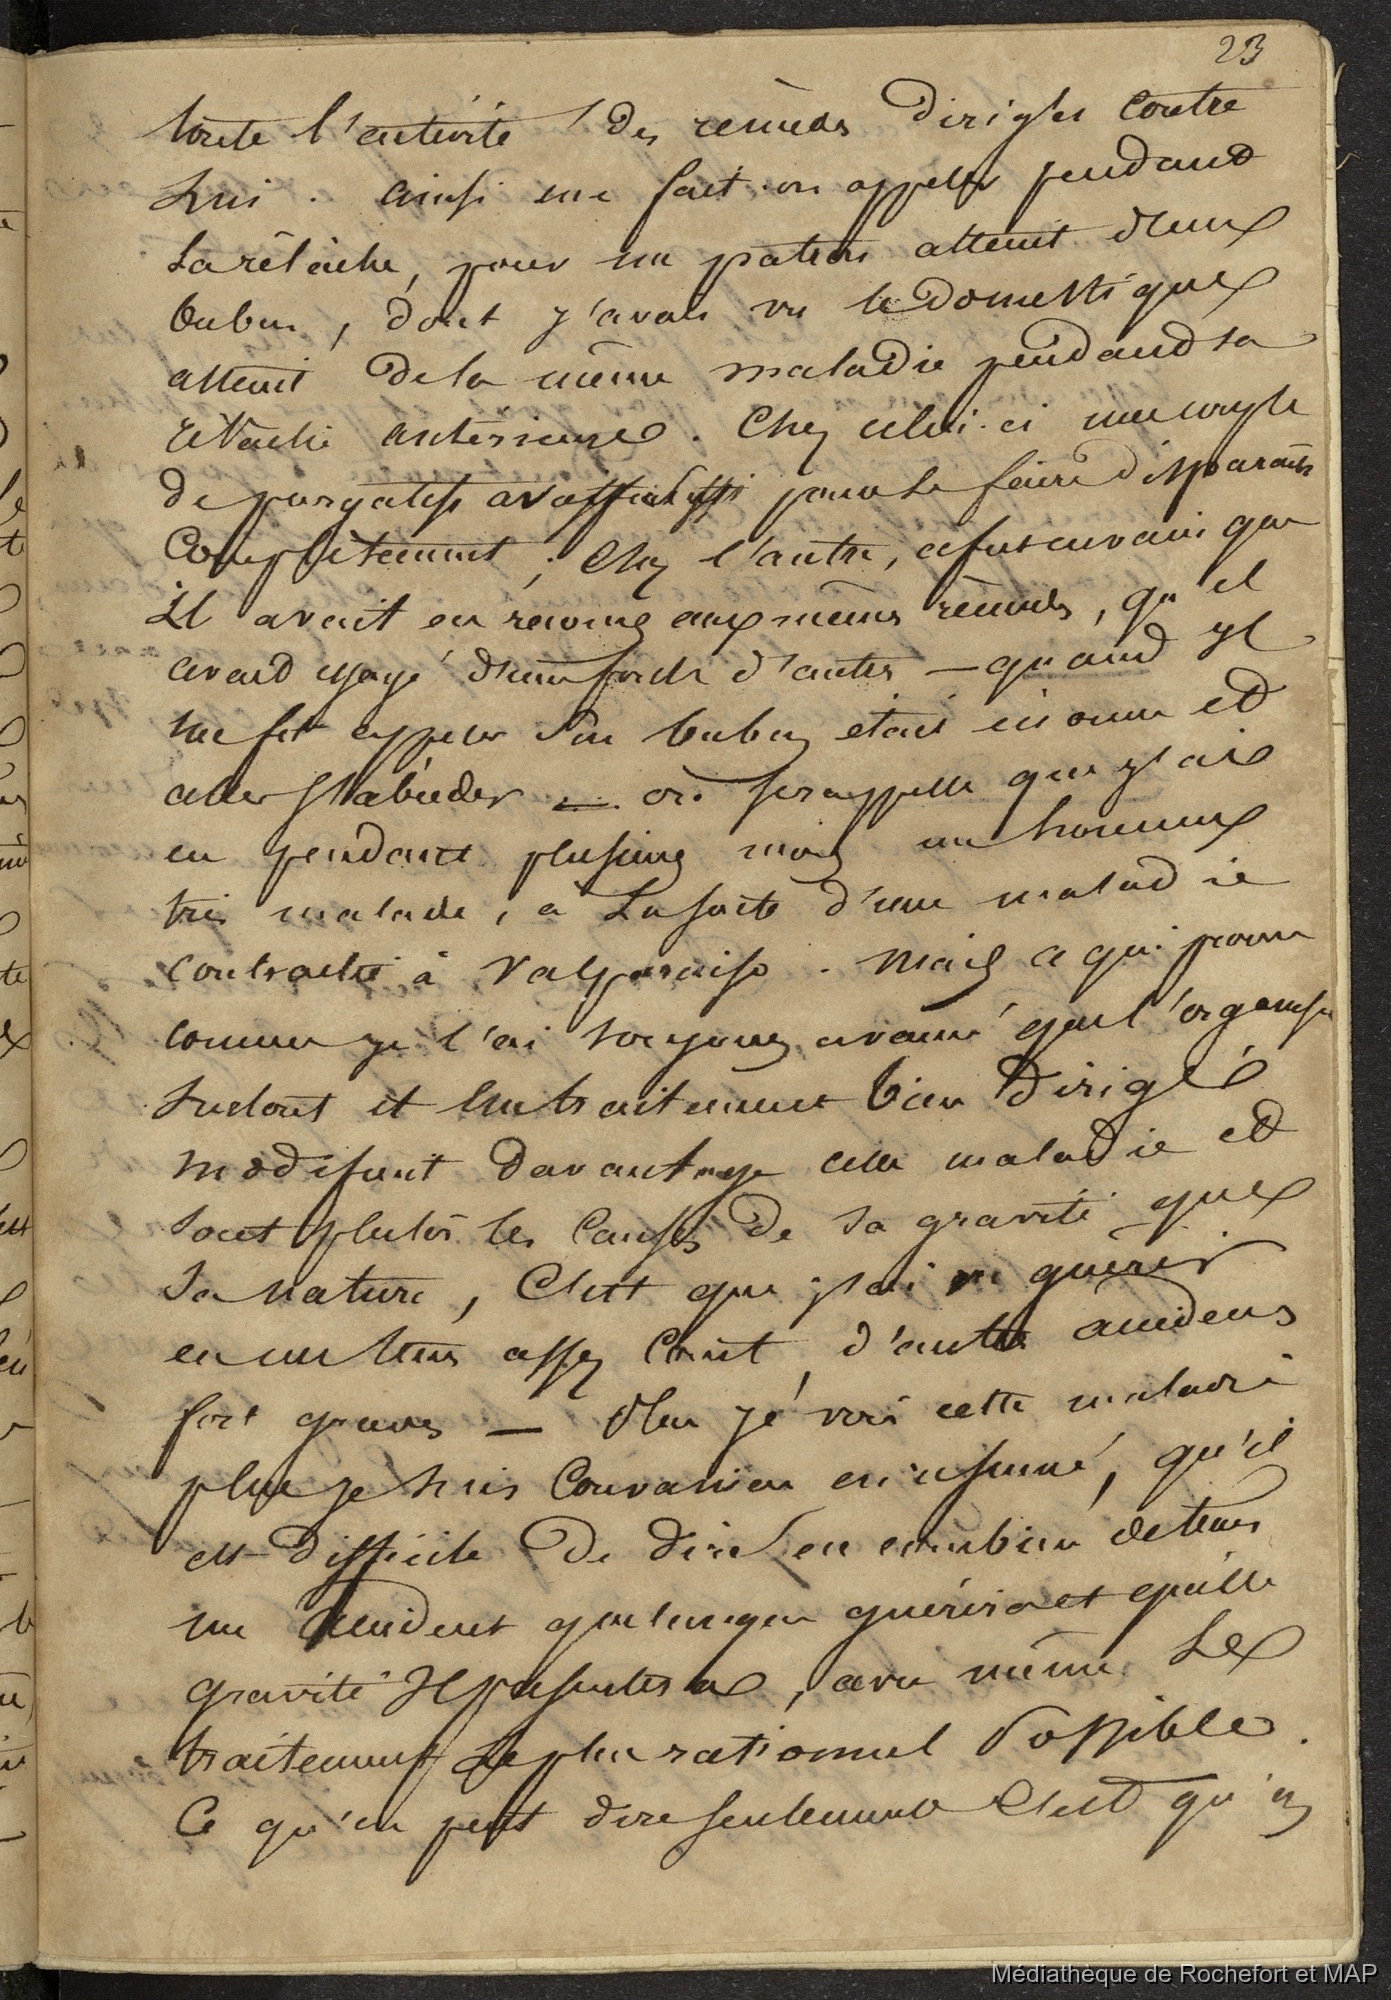 23
toute l'activité des remèdes dirigés contre
Lui. ainsi me fait-on appeler pendant
La relâche, pour un patron atteint d'un
bubon, dont j'avais vu le domestique
atteint de la même maladie pendant la
relâche antérieure. Chez celui-ci une couple
de purgatifs avait suffi pour le faire disparaître
Complètement; chez l'autre, ce fut en vain que
il avait eu recours aux mêmes remèdes, qu'il
avait essayé d'une foule d'autres — quand il
me fit appeler son bubon était énorme et
allait s'abcéder — on se rappelle que j'ai
eu pendant plusieurs mois un homme
très malade, à La suite d'une maladie
contractée à Valparaiso. Mais ce qui prouve
comme je l'ai toujours avancé que l'organisme
surtout et un traitement bien dirigé
modifient davantage cette maladie et
sont plutôt les causes de sa gravité que
sa nature, C'est que j'ai vu guérir
en un tems assez Court, d'autres accidens
fort graves — Plus je vois cette maladie
plus je suis Convaincu en résumé, qu'il
est difficile de dire en combien de tems
un accident quelconque guérira et quelle
gravité Il présentera, avec même Le
traitement Le plus rationnel Possible.
Ce qu'on peut dire seulement C'est qu'en
Médiathèque de Rochefort et MAP